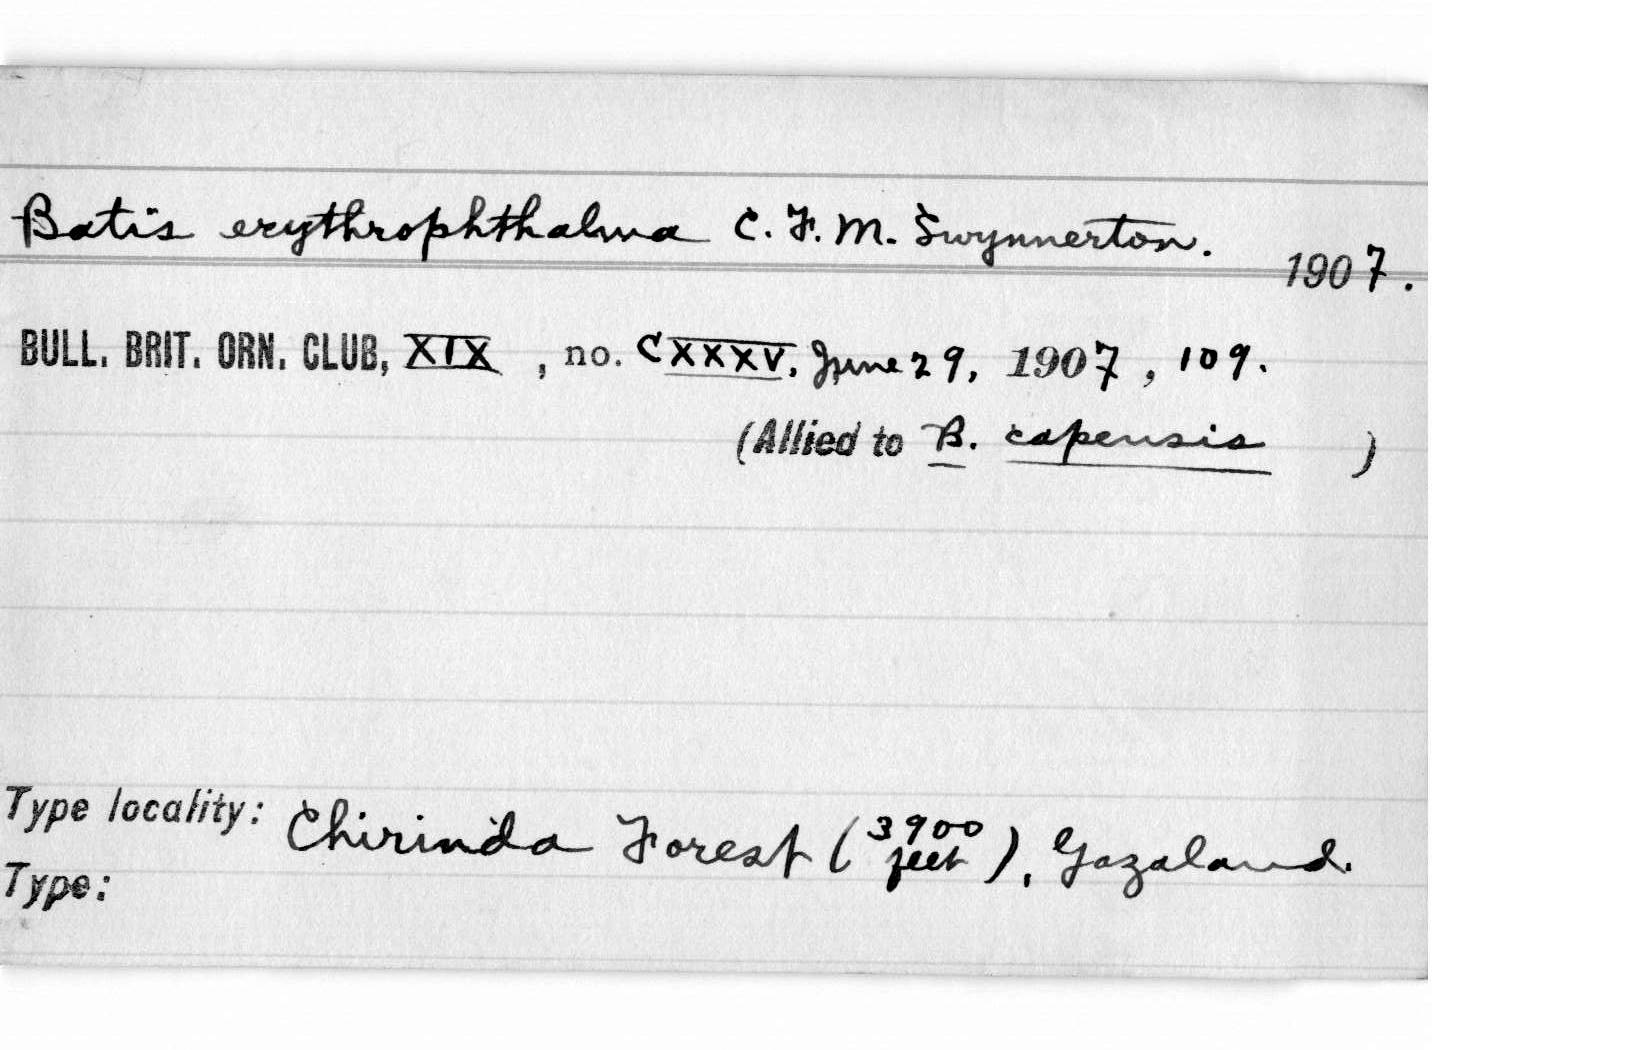 Batis erythrophthalma C. F. M. Swynnerton. 1907.
BULL. BRIT. ORN. CLUB, XIX , no. CXXXV, June 29, 1907 , 109.
(Allied to B. capensis )
Type locality: Chirinda Forest (3900 feet), Gazaland.
Type: